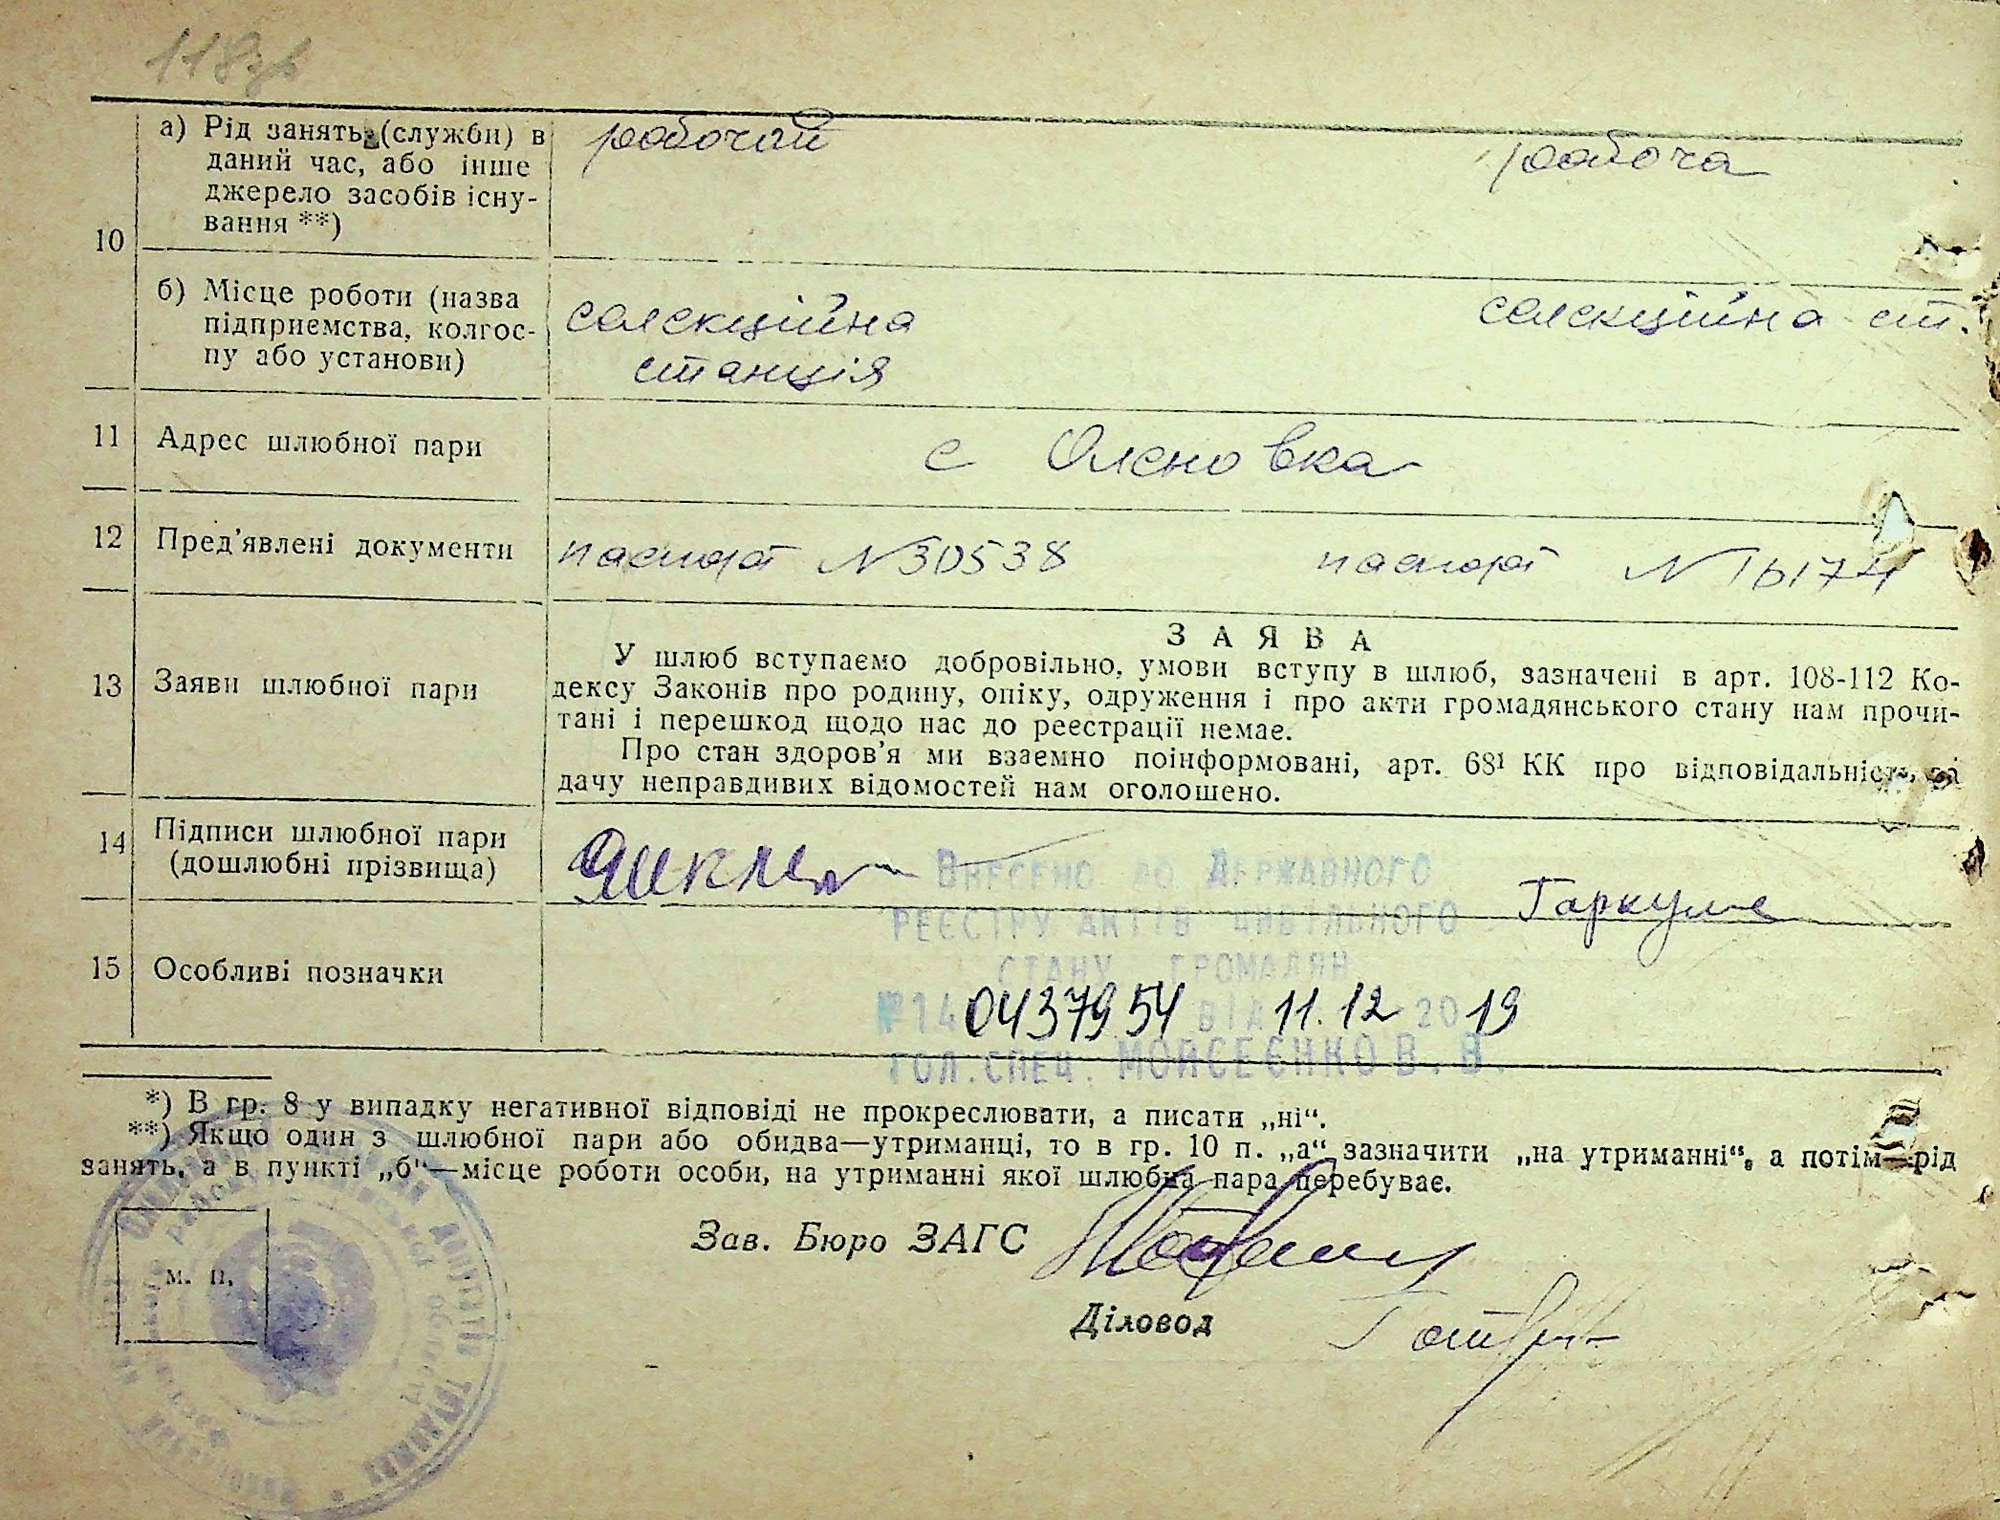 118зв
а) Рід занять (служби) в даний час, або інше джерело засобів існування **)
рабочий
рабоча
10
б) Місце роботи (назва підприємства, колгоспу або установи)
селекційна
станція
селекційна ст.
11 Адрес шлюбної пари
с Оленовка
12 Пред'явлені документи
паспорт N 30538
паспорт N
13 Заяви шлюбної пари
ЗАЯВА
У шлюб вступаємо добровільно, умови вступу в шлюб, зазначені в арт. 108-112 Ко-
дексу Законів про родину, опіку, одруження і про акти громадянського стану нам прочи-
тані і перешкод щодо нас до реєстрації немає.
Про стан здоров'я ми взаємно поінформовані, арт. 68¹ КК про відповідальність за
дачу неправдивих відомостей нам оголошено.
14 Підписи шлюбної пари
(дошлюбні прізвища)
Гаркуше
Внесено до Державного
реєстру актів цивільного
стану громадян
15 Особливі позначки
№14 0437954 від 11.12 2019
гол.спец. Мойсеєнко В.В.
*) В гр. 8 у випадку негативної відповіді не прокреслювати, а писати „ні“.
**) Якщо один з шлюбної пари або обидва—утриманці, то в гр. 10 п. „а“ зазначити „на утриманні“, а потім—рід
занять, а в пункті „б“—місце роботи особи, на утриманні якої шлюбна пара перебуває.
Зав. Бюро ЗАГС
м. п.
Діловод